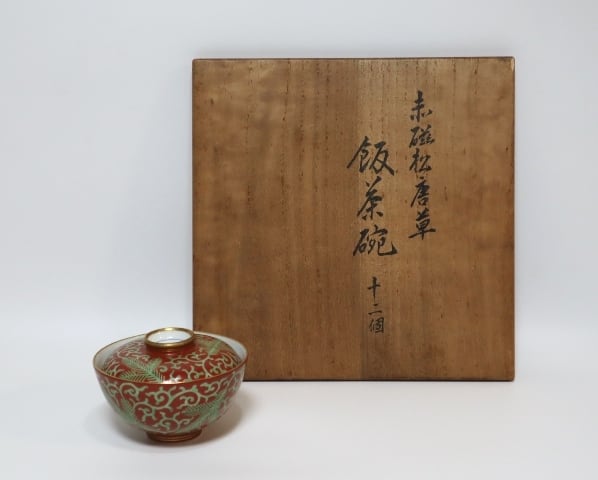 赤磁松唐草
飯茶碗
十二個